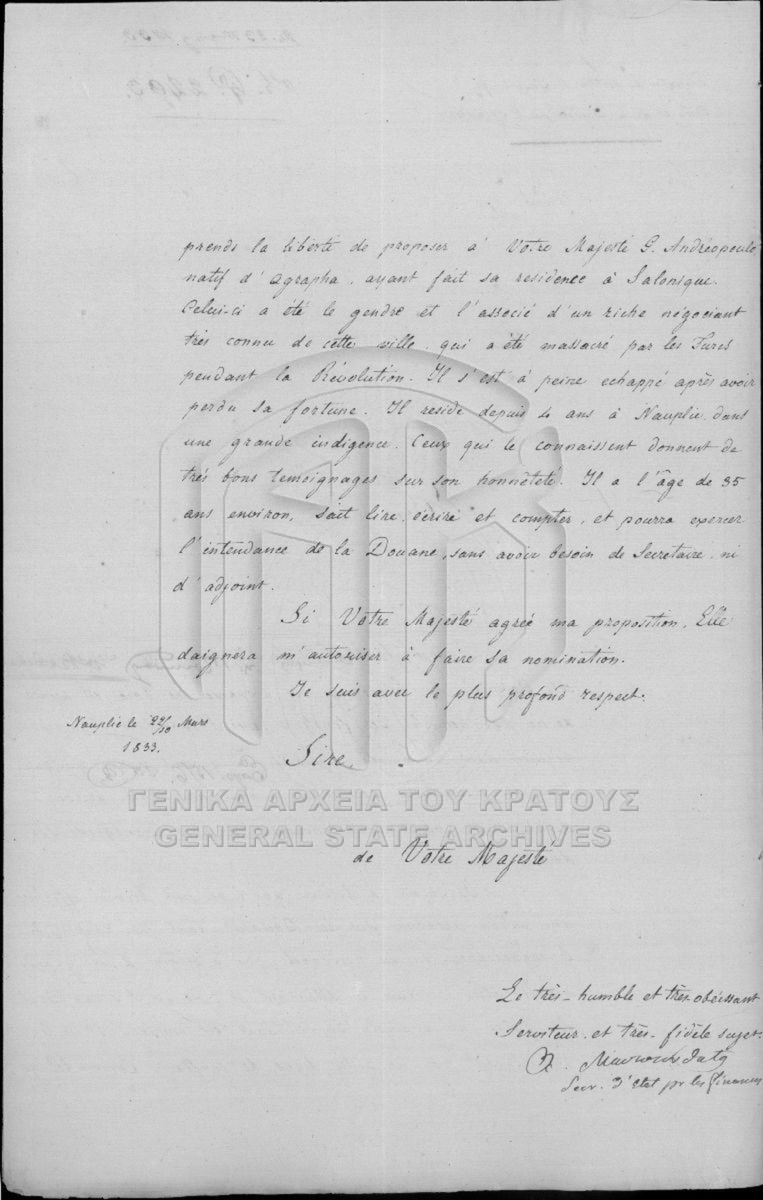 prends la liberté de proposer à Votre Majesté G. Andréopoulo
natif d'Agrapha, ayant fait sa residence à Salonique.
Celui-ci a été le gendre et l'associé d'un riche négociant
très connu de cette ville, qui a été massacré par les Turcs
pendant la Révolution. Il s'est à peine echappé après avoir
perdu sa fortune. Il reside depuis 4 ans à Nauplie dans
une grande indigence. Ceux qui le connaissent donnent de
très bons temoignages sur son honnêteté. Il a l'âge de 35
ans environ, sait lire, écrire et compter, et pourra exercer
l'intendance de la Douane, sans avoir besoin de Secretaire, ni
d'adjoint.
Si Votre Majesté agrée ma proposition, Elle
daignera m'autoriser à faire sa nomination.
Je suis avec le plus profond respect.
Nauplie le Mars
1833.
Sire
ΓΕΝΙΚΑ ΑΡΧΕΙΑ ΤΟΥ ΚΡΑΤΟΥΣ
GENERAL STATE ARCHIVES
de Votre Majesté
Le très-humble et très-obéissant
Serviteur et très-fidèle sujet.
Secr. d'Etat pr les Finances